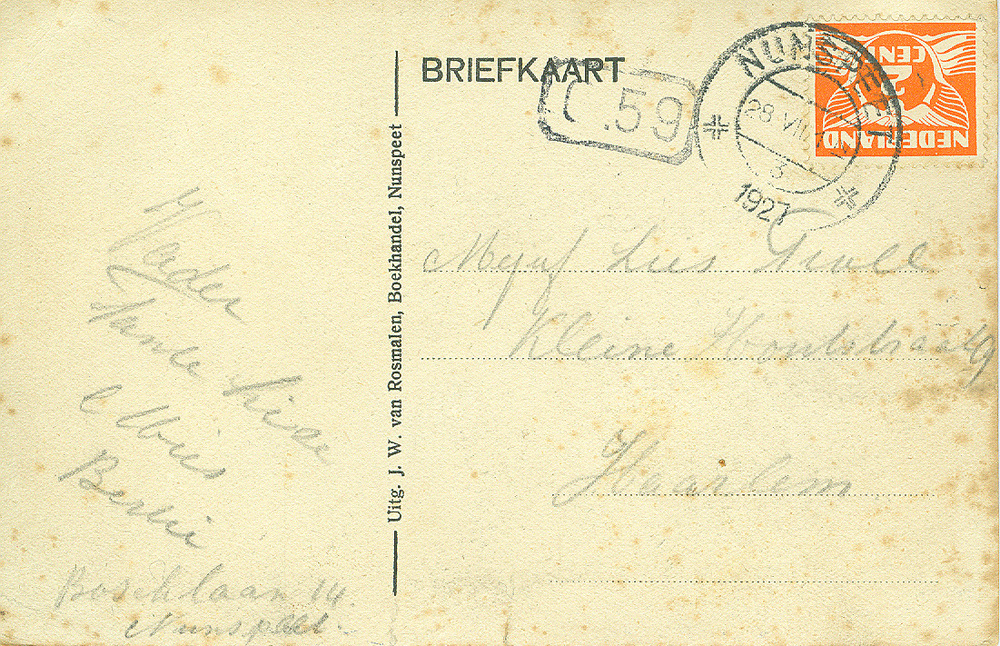 BRIEFKAART
C.59
NUNSPEET
28 VII
3
1927
2
CENT
NEDERLAND
Uitg. J. W. van Rosmalen, Boekhandel, Nunspeet
Mejuf Lies
Kleine Houtstraat 9
Haarlem
Tante Lise
Mies
Boschlaan 14
Nunspeet.